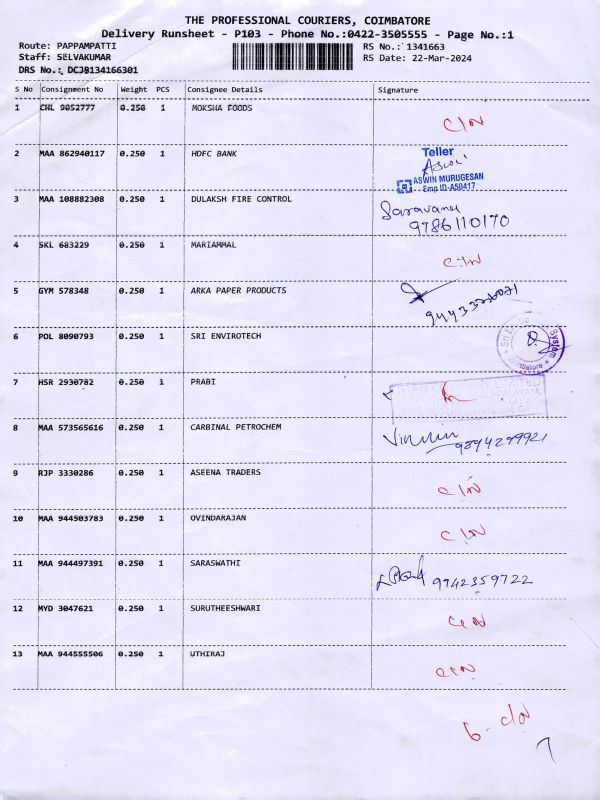 THE PROFESSIONAL COURIERS, COIMBATORE
Delivery Runsheet - P103 - Phone No.:0422-3505555 - Page No.:1
Route: PAPPAMPATTI RS No.: 1341663
Staff: SELVAKUMAR RS Date: 22-Mar-2024
DRS No.: DCJB134166301
S No Consignment No Weight PCS Consignee Details Signature
1 CHL 9052777 0.250 1 MOKSHA FOODS C/N
2 MAA 862940117 0.250 1 HDFC BANK Teller
ASWIN MURUGESAN
Emp ID-A50417
3 MAA 108882308 0.250 1 DULAKSH FIRE CONTROL Saravanan
9786110170
4 SKL 683229 0.250 1 MARIAMMAL C/N
5 GYM 578348 0.250 1 ARKA PAPER PRODUCTS
6 POL 8090793 0.250 1 SRI ENVIROTECH System
7 HSR 2930782 0.250 1 PRABI
8 MAA 573565616 0.250 1 CARBINAL PETROCHEM 9894299921
9 RJP 3330286 0.250 1 ASEENA TRADERS C/N
10 MAA 944503783 0.250 1 OVINDARAJAN C/N
11 MAA 944497391 0.250 1 SARASWATHI 9742359722
12 MYD 3047621 0.250 1 SURUTHEESHWARI C/N
13 MAA 944555506 0.250 1 UTHIRAJ C/N
6- C/N
7